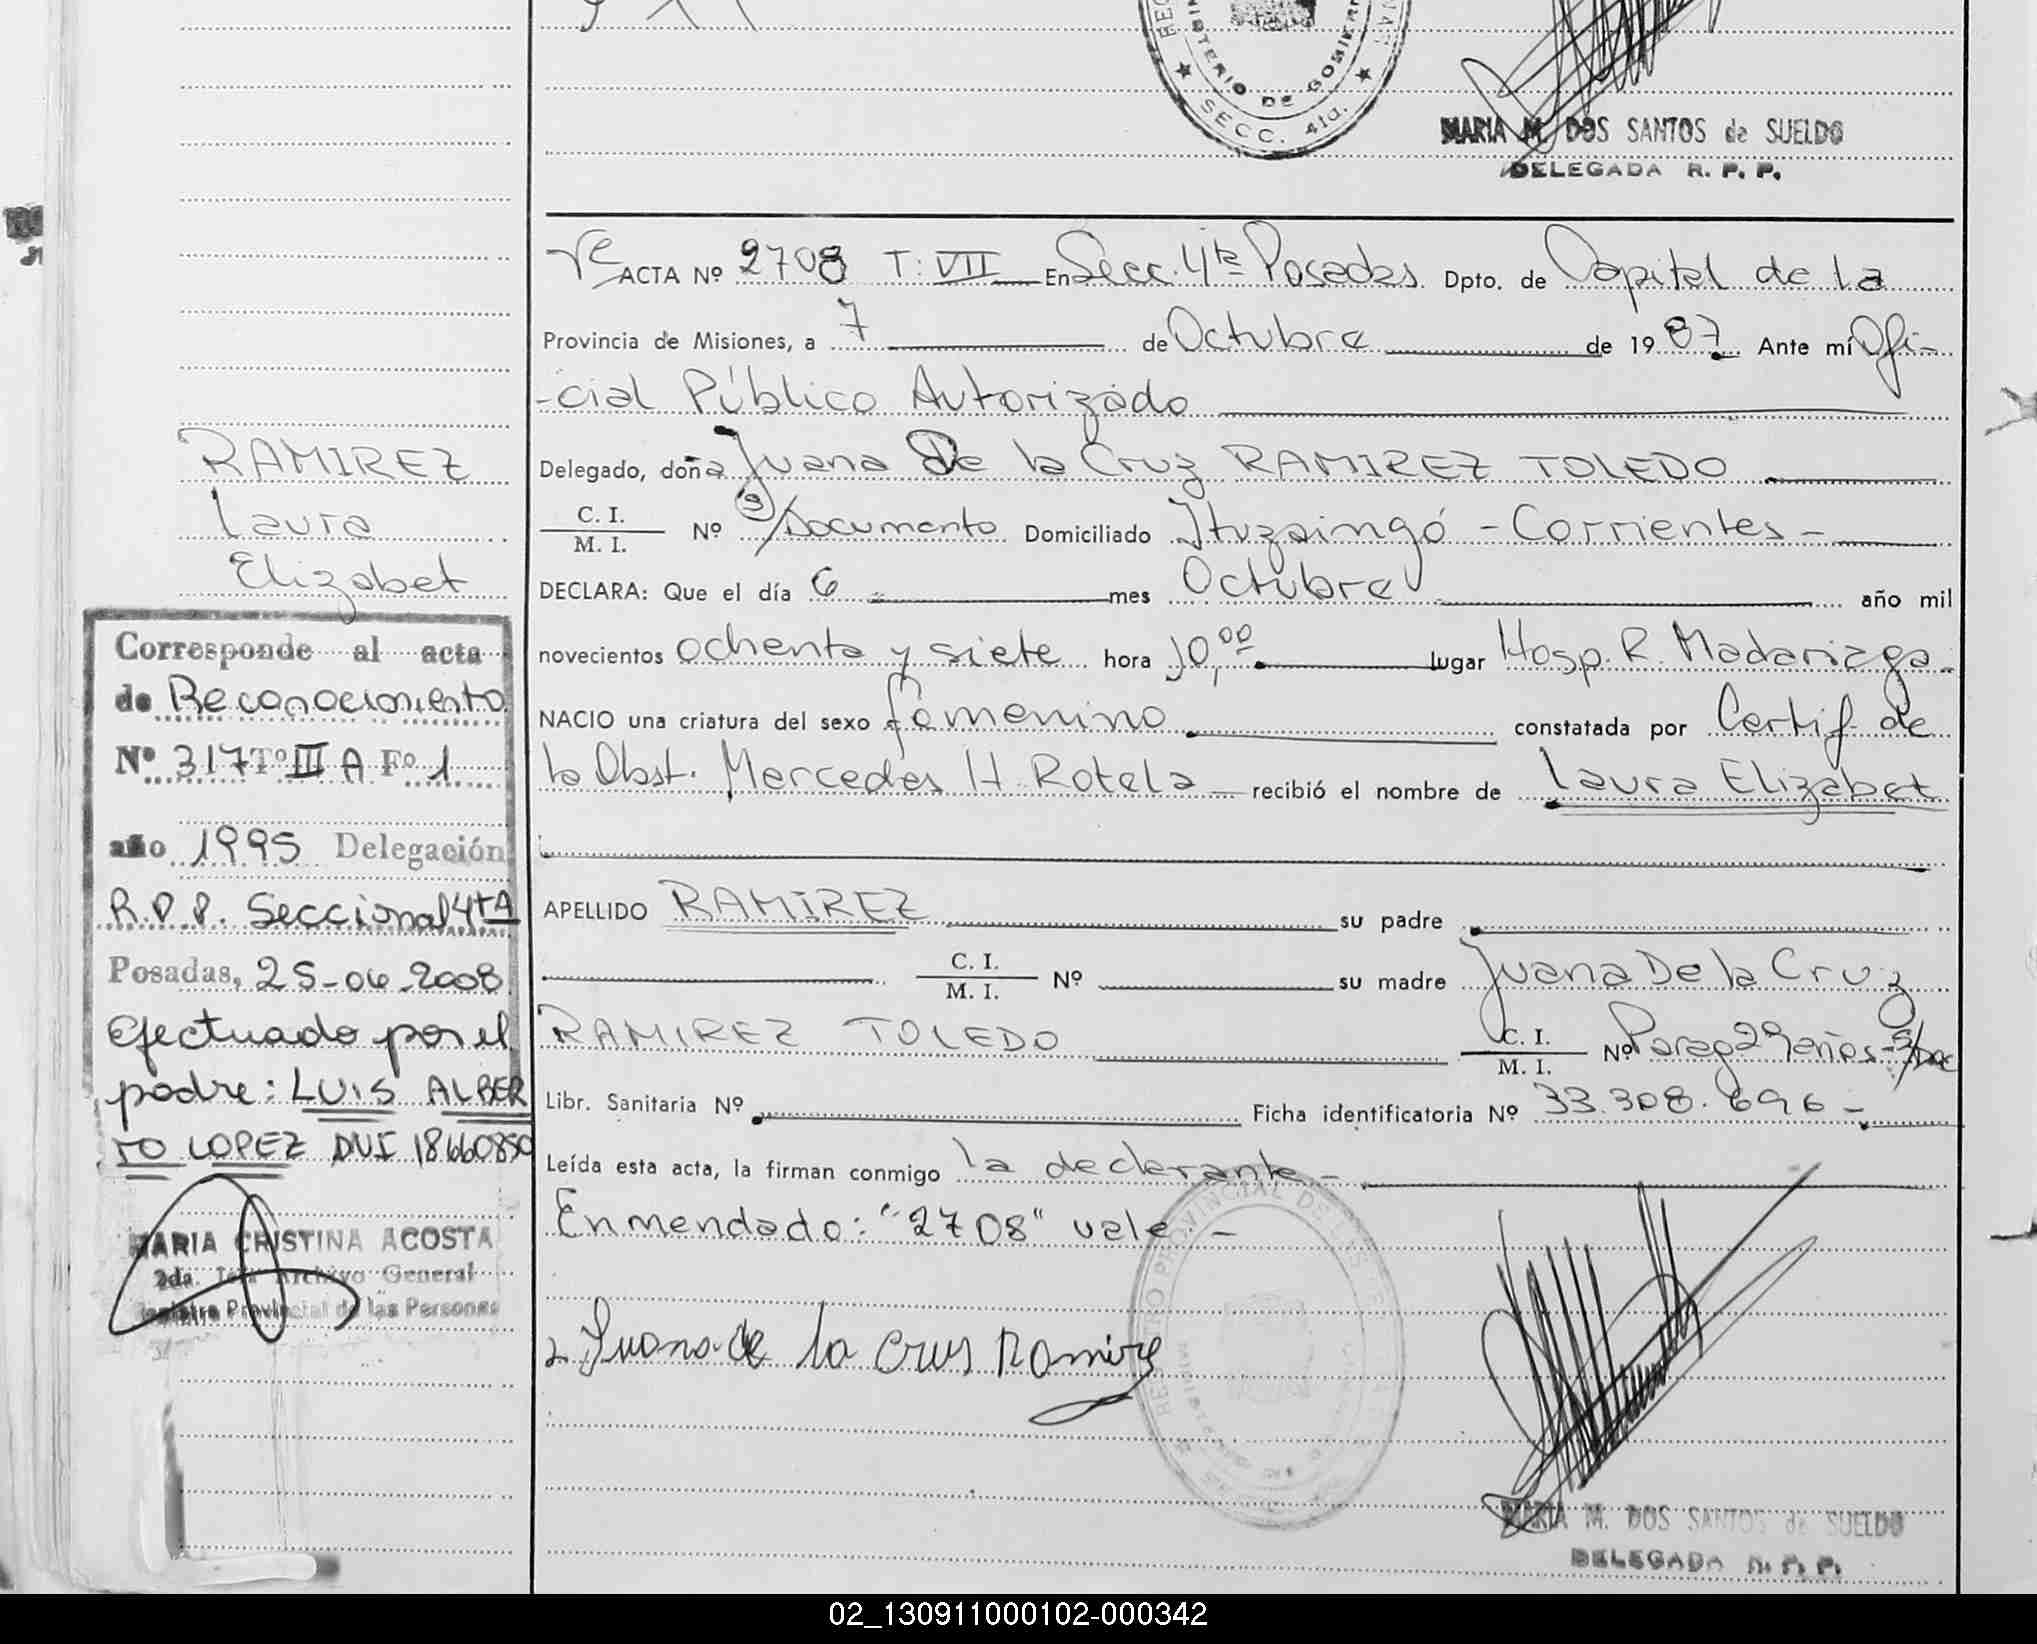 MINISTERIO DE GOBIERNO
SECC. 4ta.
MARIA M. DOS SANTOS de SUELDO
DELEGADA R. P. P.
ACTA Nº 2708 T: VII En Secc. 4ta Posadas Dpto. de Capital de la
Provincia de Misiones, a 7 de Octubre de 1987. Ante mí Ofi-
-cial Público Autorizado
Delegado, doña Juana De la Cruz RAMIREZ TOLEDO
C. I.
M. I. Nº S/Documento Domiciliado Ituzaingó - Corrientes -
DECLARA: Que el día 6 mes Octubre año mil
novecientos ochenta y siete hora 10,00 lugar Hosp. R. Madariaga
NACIO una criatura del sexo femenino constatada por Certif. de
la Obst. Mercedes H. Rotela recibió el nombre de Laura Elizabet
APELLIDO RAMIREZ su padre
C. I.
M. I. Nº su madre Juana De la Cruz
RAMIREZ TOLEDO C. I.
M. I. Nº Parag 29 años - S/Doc
Libr. Sanitaria Nº Ficha identificatoria Nº 33.308.696 -
Leída esta acta, la firman conmigo la declarante -
Enmendado: "2708" vale -
Juana de la crus Ramire
MARIA M. DOS SANTOS de SUELDO
DELEGADA R. P. P.
RAMIREZ
Laura
Elizabet
Corresponde al acta
de Reconocimiento
Nº 317 Tº III A Fº 1
año 1995 Delegación
R.P.P. Seccional 4tA
Posadas, 25-06-2008
Efectuado por el
padre: LUIS ALBER
TO LOPEZ DNI 18660850
MARIA CRISTINA ACOSTA
2da. Jefa Archivo General
Registro Provincial de las Personas
02_130911000102-000342